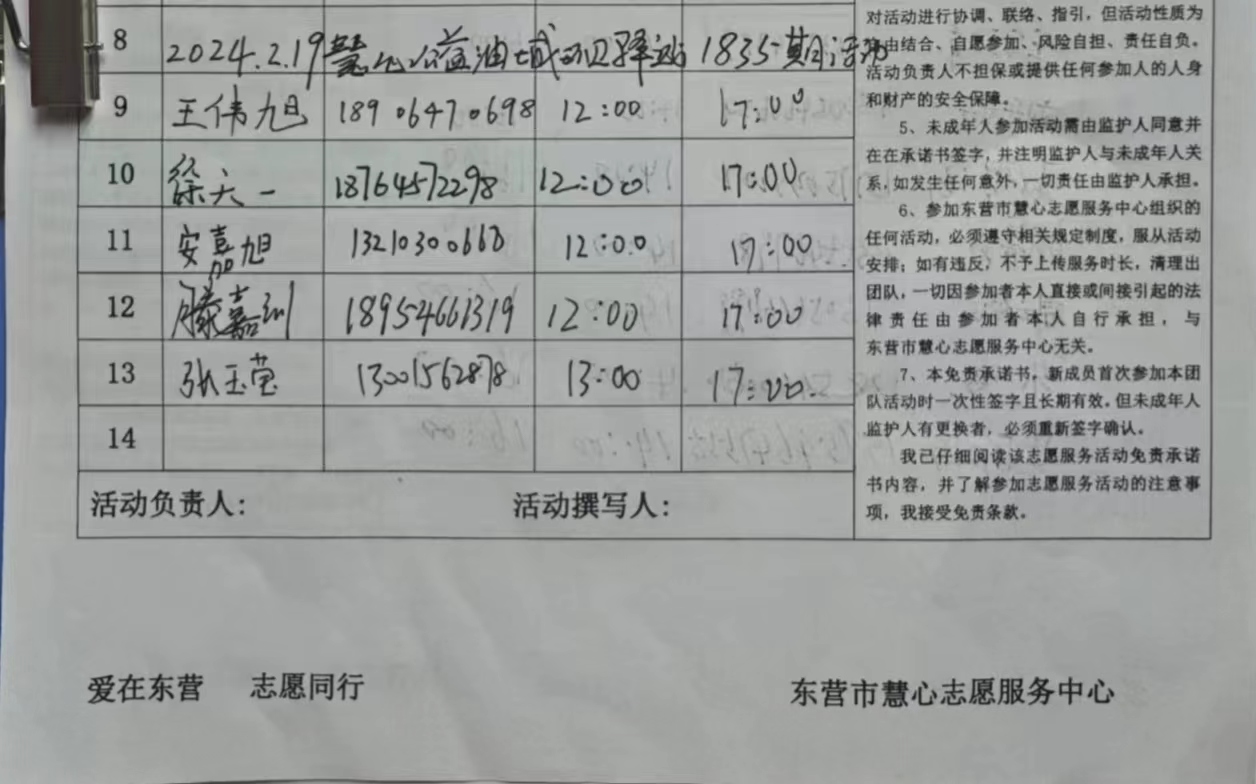 8 2024.2.19慧心公益油城 驿站1835期活动
9 王伟旭 18906470698 12:00 17:00
10 徐六一 18764572298 12:00 17:00
11 安嘉旭 13210300668 12:00 17:00
12 滕嘉 18954661319 12:00 17:00
13 张玉莹 13001562878 13:00 17:00
14
活动负责人: 活动撰写人:
对活动进行协调、联络、指引,但活动性质为
自由结合、自愿参加、风险自担、责任自负。
活动负责人不担保或提供任何参加人的人身
和财产的安全保障。
5、未成年人参加活动需由监护人同意并
在在承诺书签字,并注明监护人与未成年人关
系,如发生任何意外,一切责任由监护人承担。
6、参加东营市慧心志愿服务中心组织的
任何活动,必须遵守相关规定制度,服从活动
安排;如有违反,不予上传服务时长,清理出
团队,一切因参加者本人直接或间接引起的法
律责任由参加者本人自行承担,与
东营市慧心志愿服务中心无关。
7、本免责承诺书,新成员首次参加本团
队活动时一次性签字且长期有效。但未成年人
监护人有更换者,必须重新签字确认。
我已仔细阅读该志愿服务活动免责承诺
书内容,并了解参加志愿服务活动的注意事
项,我接受免责条款。
爱在东营 志愿同行 东营市慧心志愿服务中心